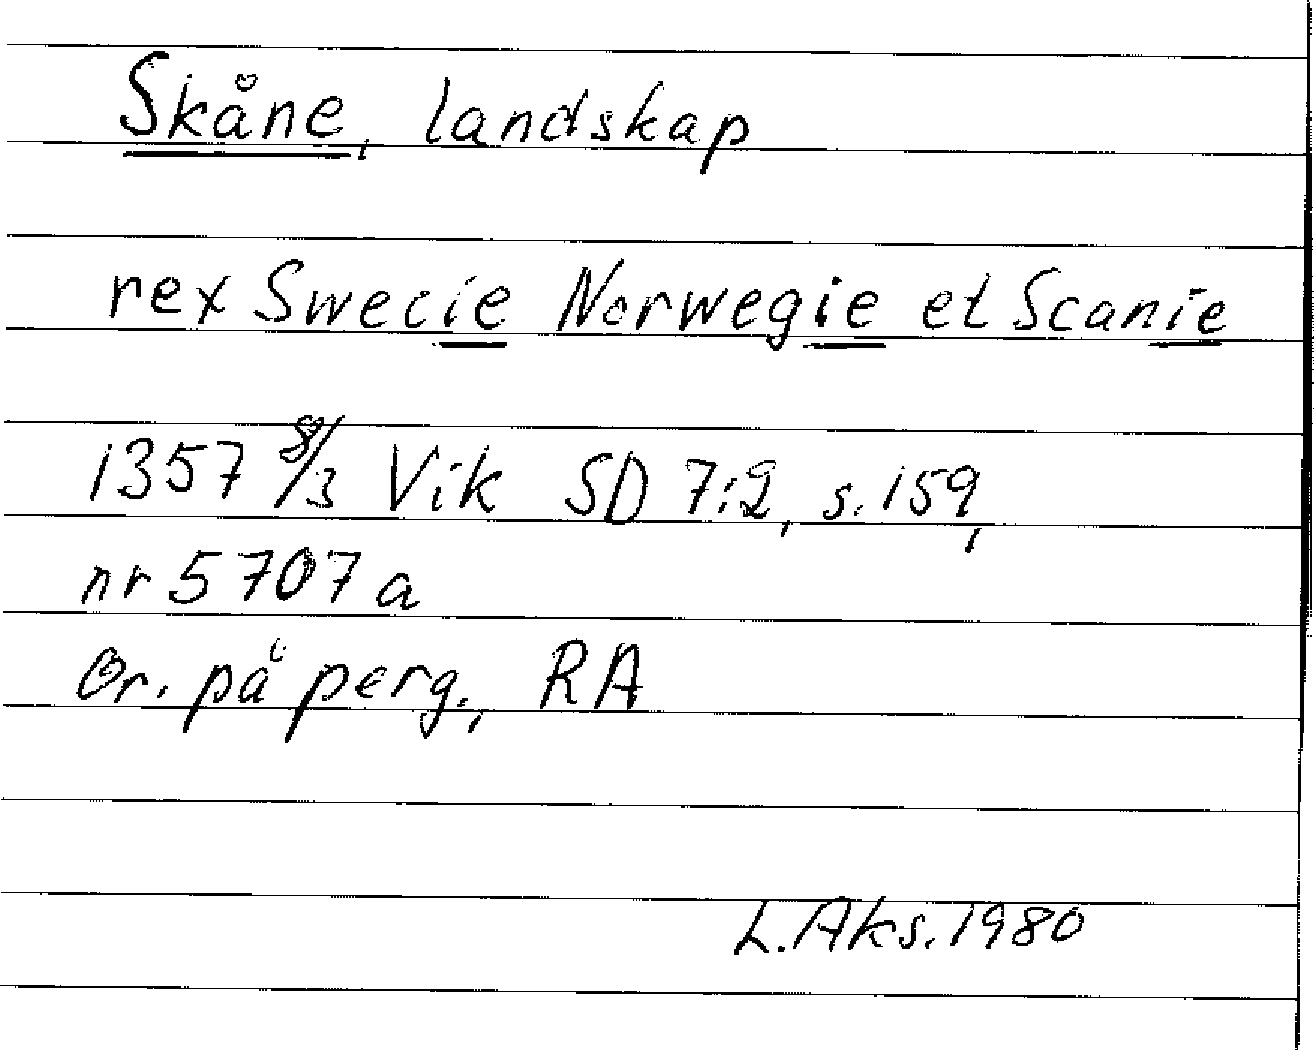 Skåne, landskap
rex Swecie Norwegie et Scanie
1357 8/3 Vik SD 7:2, s. 159,
nr 5707 a
Or. på perg., RA
L. Aks. 1980